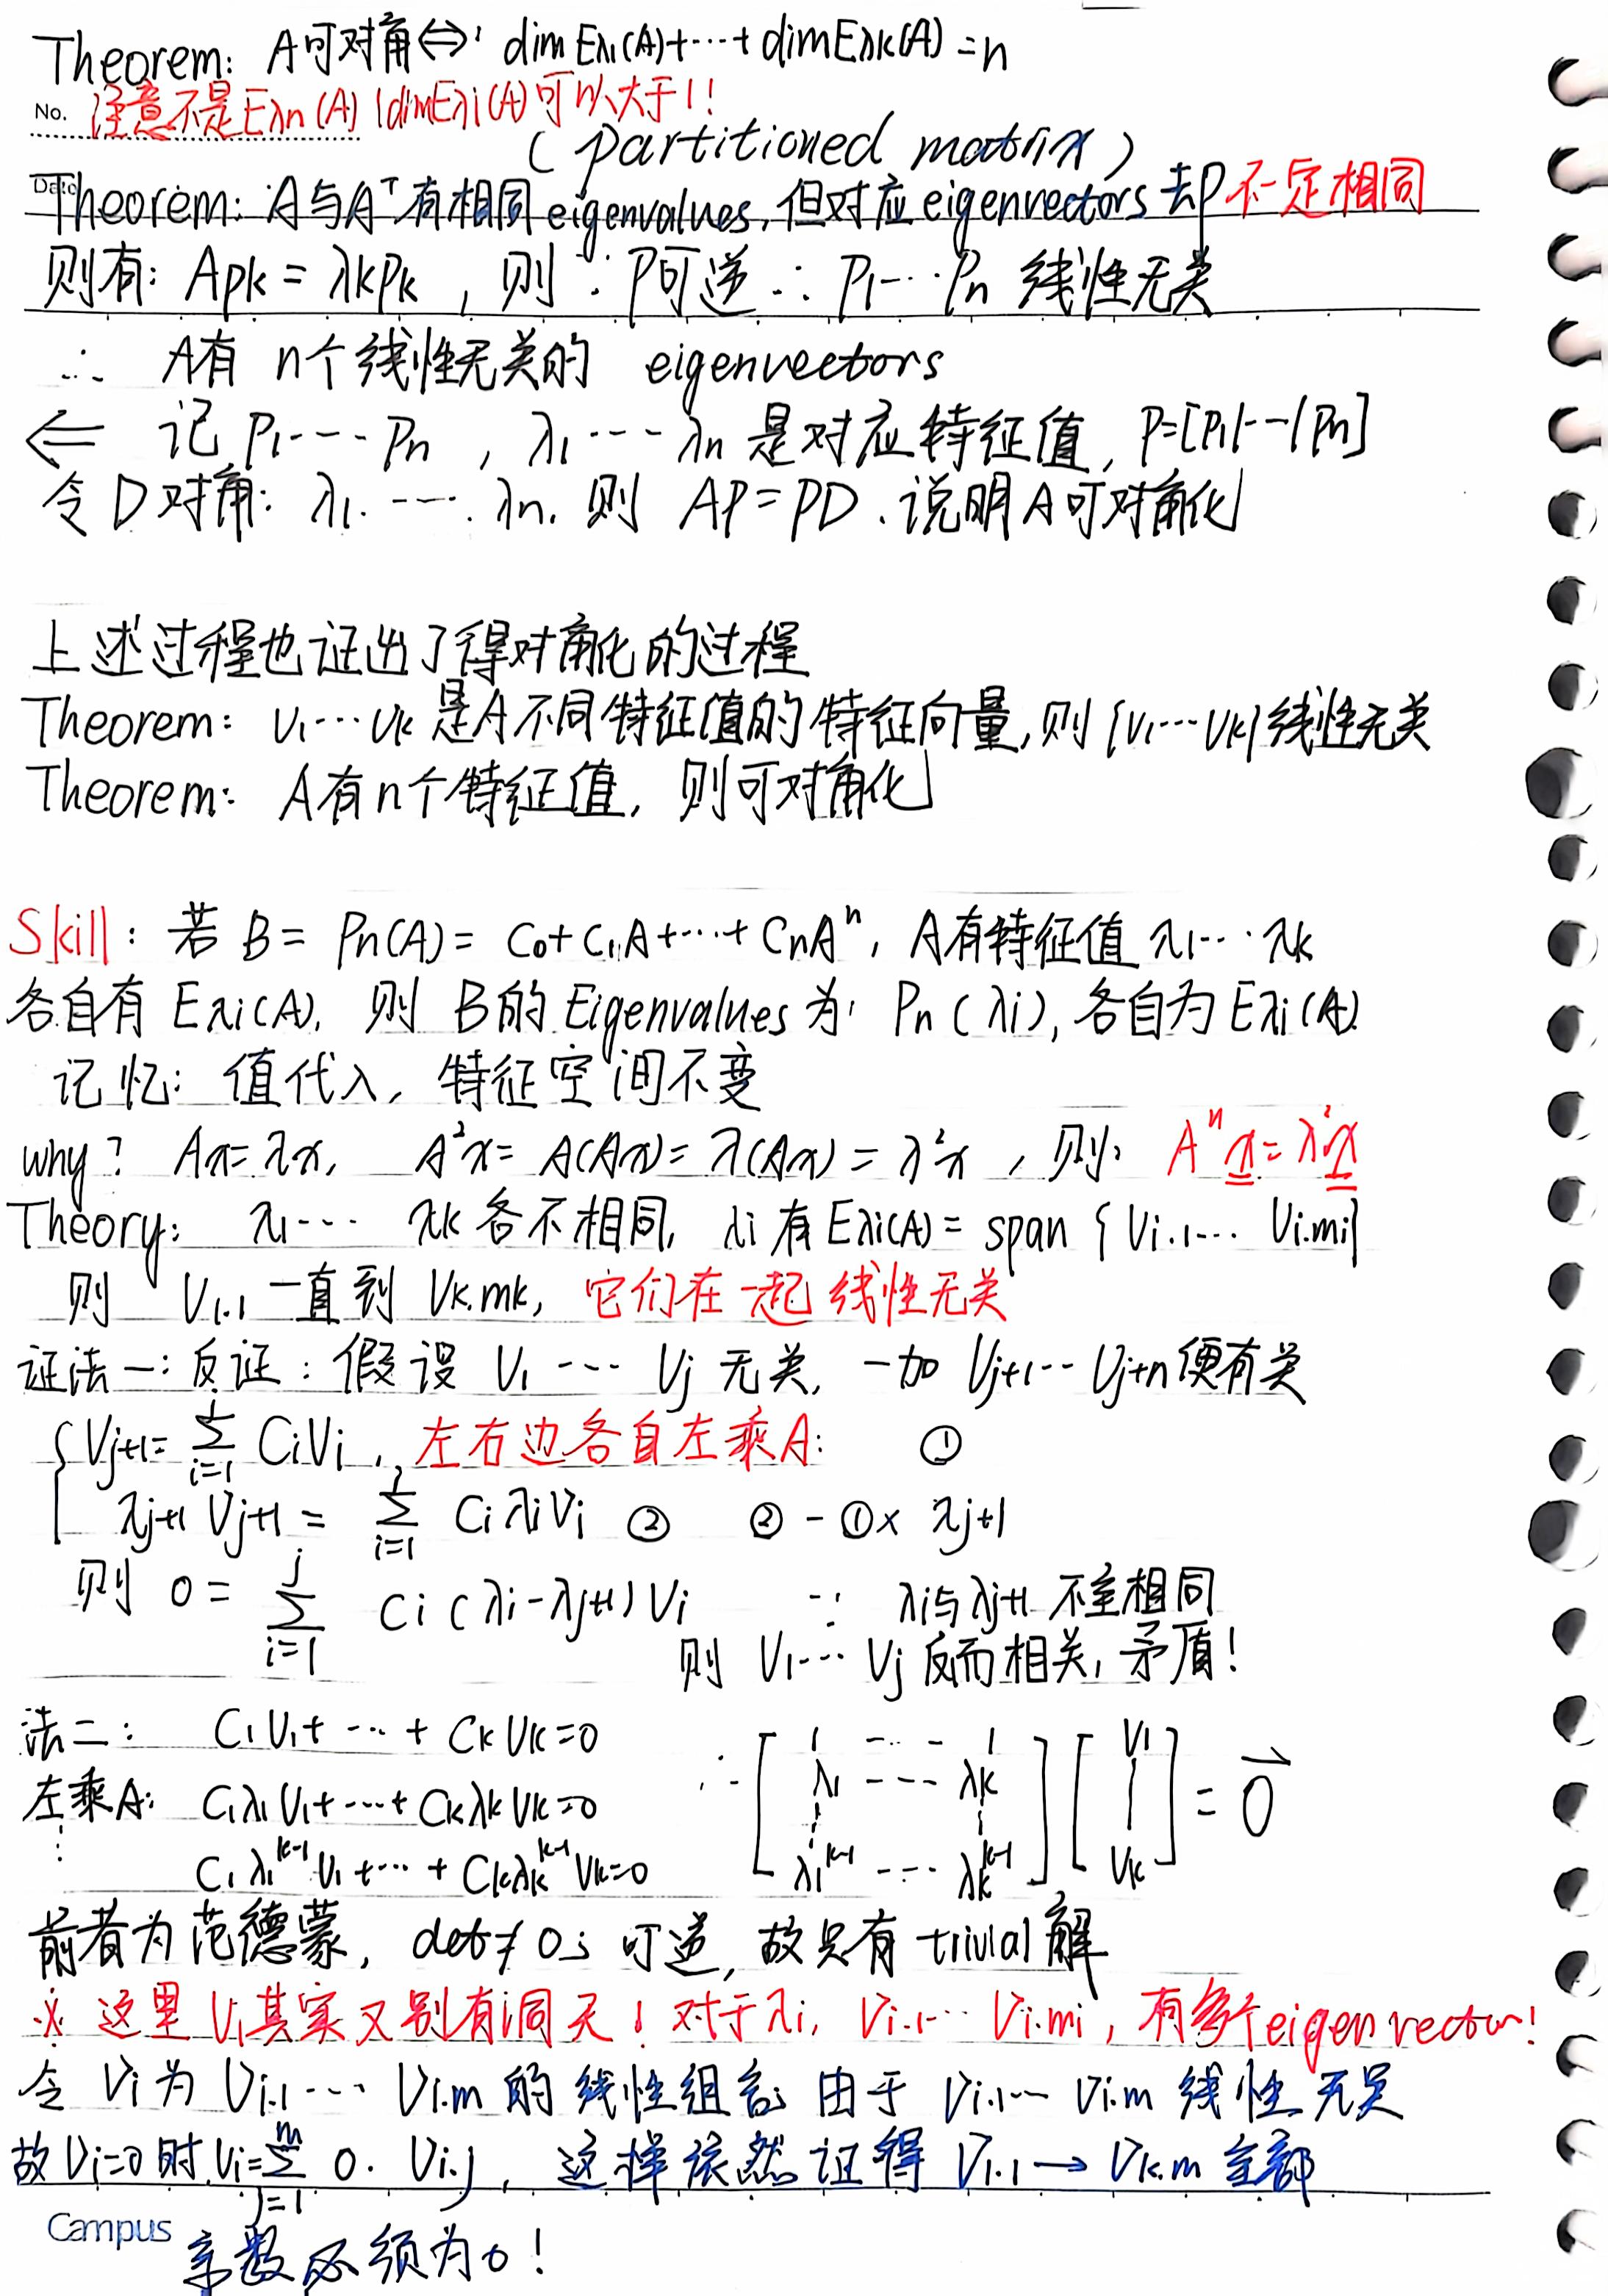 Theorem: A可对角⇔ dimEλ1(A)+···+dimEλk(A)=n
No. 注意不是Eλn(A) !dimEλi(A)可以大于1!!
(partitioned matrix)
Date
Theorem: A与Aᵀ有相同eigenvalues,但对应eigenvectors 去P 不一定相同
则有: Apk = λkpk , 则 ∵ P可逆 ∴ P1···Pn 线性无关
∴ A有 n个线性无关的 eigenvectors
⇐ 记 P1---Pn , λ1---λn 是对应特征值, P=[P1|--|Pn]
令D对角: λ1.---.λn. 则 AP=PD.说明A可对角化
上述过程也证出了得对角化的过程
Theorem: V1···Vk 是A不同特征值的特征向量,则{V1···Vk}线性无关
Theorem: A有n个特征值, 则可对角化
Skill: 若 B= Pn(A)= C0+C1A+···+CnAⁿ, A有特征值 λ1···λk
各自有 Eλi(A), 则 B的Eigenvalues为: Pn(λi),各自为Eλi(A).
记忆: 值代入, 特征空间不变
why? Ax=λx, A²x= A(Ax)= λ(Ax)= λ²x , 则: Aⁿx=λ²x
Theory: λ1--- λk 各不相同, λi 有 Eλi(A)= span {Vi.1... Vi.mi}
则 V1.1 一直到 Vk.mk, 它们在一起线性无关
证法一: 反证: 假设 V1 --- Vj 无关, 一加 Vj+1--Vj+n便有关
{ Vj+1= Σ_{i=1}^{j} CiVi , 左右边各自左乘A: ①
λj+1 Vj+1 = Σ_{i=1}^{j} CiλiVi ② ② - ①× λj+1
则 0= Σ_{i=1}^{j} Ci(λi-λj+1)Vi ∵ λi与λj+1 不全相同
则 V1··· Vj 反而相关, 矛盾!
法二: C1V1+ ··· + CkVk=0
左乘A: C1λ1V1+···+CkλkVk=0
⋮ C1λ1^{k-1}V1+···+Ckλk^{k-1}Vk=0
∴ [1 --- 1 λ1 --- λk ⋮ ⋮ λ1^{k-1} --- λk^{k-1}] [V1 | Vk] = 0⃗
前者为范德蒙, det≠0; 可逆, 故只有trivial解
※ 这里Vi其实又别有洞天! 对于λi, Vi.1··· Vi.mi , 有多个eigenvector!
令 Vi 为 Vi.1··· Vi.m 的线性组合; 由于 Vi.1--- Vi.m 线性无关
故Vi=0时,Vi=Σ_{j=1}^{m} 0. Vi.j , 这样依然证得 V1.1→Vk.m 全部
Campus
系数必须为0!